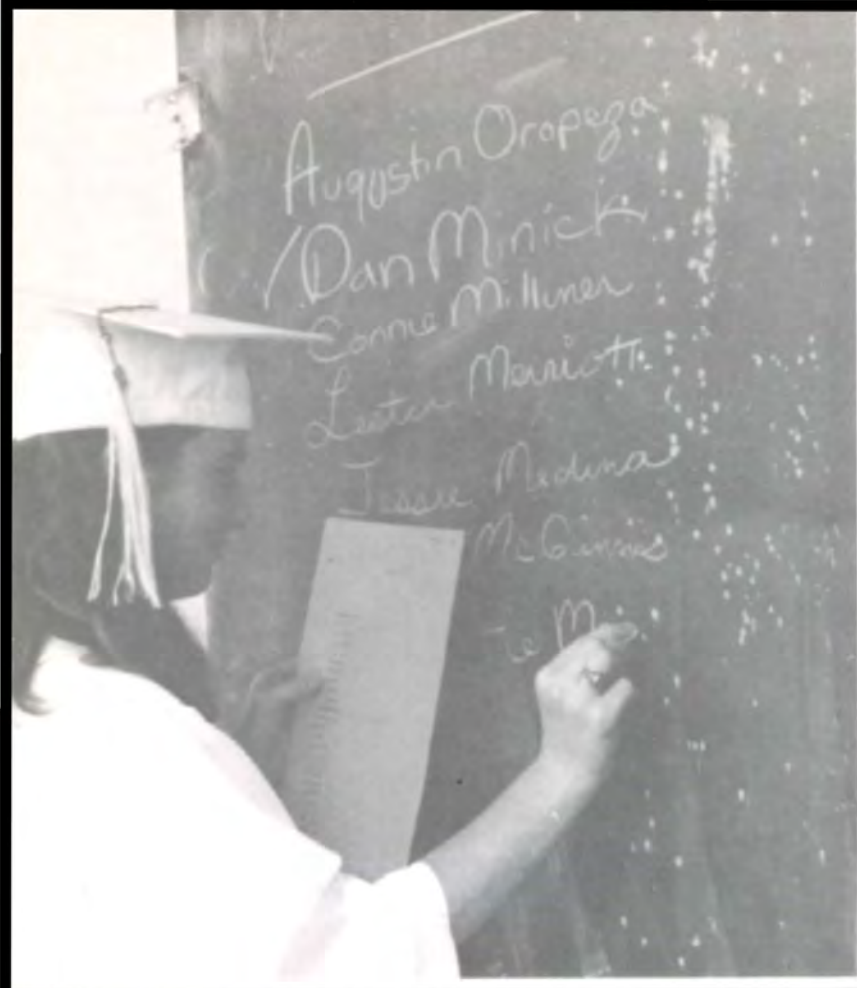 Augustin Oropeza
Dan Minick
Connie Milliner
Lester Marriott
Jessie Medina
McGinnis
ie M